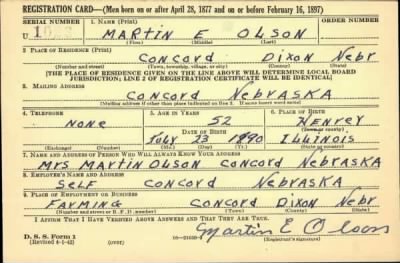 REGISTRATION CARD—(Men born on or after April 28, 1877 and on or before February 16, 1897)
SERIAL NUMBER 1. NAME (Print) ORDER NUMBER
U MARTIN E OLSON
(First) (Middle) (Last)
2. PLACE OF RESIDENCE (Print)
CONCORD DIXON NEBR
(Number and street) (Town, township, village, or city) (County) (State)
[THE PLACE OF RESIDENCE GIVEN ON THE LINE ABOVE WILL DETERMINE LOCAL BOARD
JURISDICTION; LINE 2 OF REGISTRATION CERTIFICATE WILL BE IDENTICAL]
3. MAILING ADDRESS
CONCORD NEBRASKA
[Mailing address if other than place indicated on line 2. If same insert word same]
4. TELEPHONE 5. AGE IN YEARS 6. PLACE OF BIRTH
NONE 52 HENREY
DATE OF BIRTH (Town or county)
JULY 23 1890 ILLINOIS
(Exchange) (Number) (Mo.) (Day) (Yr.) (State or country)
7. NAME AND ADDRESS OF PERSON WHO WILL ALWAYS KNOW YOUR ADDRESS
MRS MARTIN OLSON CONCORD NEBRASKA
8. EMPLOYER'S NAME AND ADDRESS
SELF CONCORD NEBRASKA
9. PLACE OF EMPLOYMENT OR BUSINESS
FARMING CONCORD DIXON NEBR
(Number and street or R. F. D. number) (Town) (County) (State)
I AFFIRM THAT I HAVE VERIFIED ABOVE ANSWERS AND THAT THEY ARE TRUE.
D. S. S. Form 1
(Revised 4-1-42) (over) Martin E Olson
(Registrant's signature)